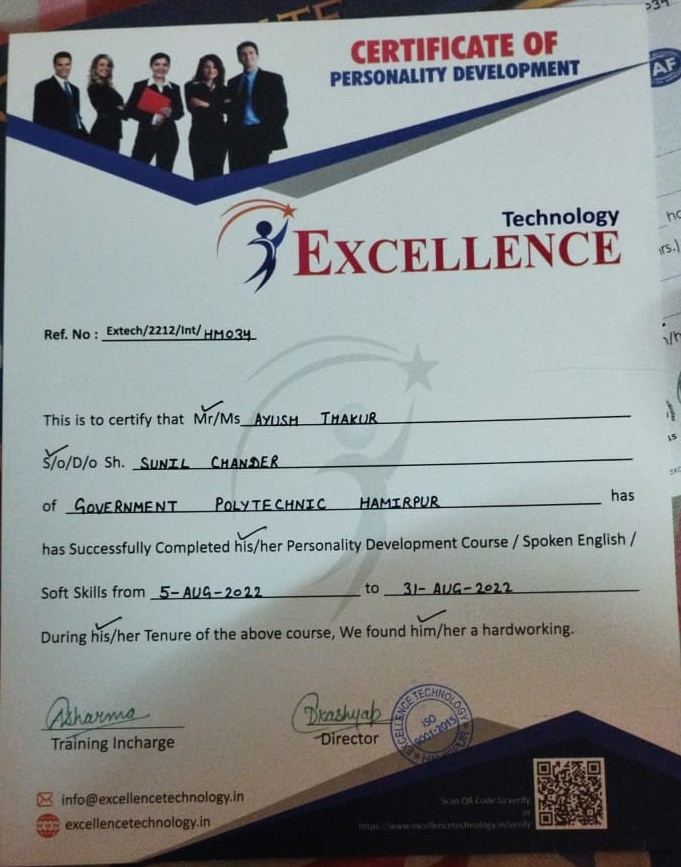 CERTIFICATE OF
PERSONALITY DEVELOPMENT
Technology
EXCELLENCE
Ref. No : Extech/2212/Int/ HM034
This is to certify that Mr/Ms AYUSH THAKUR
S/o/D/o Sh. SUNIL CHANDER
of GOVERNMENT POLYTECHNIC HAMIRPUR has
has Successfully Completed his/her Personality Development Course / Spoken English /
Soft Skills from 5-AUG-2022 to 31-AUG-2022
During his/her Tenure of the above course, We found him/her a hardworking.
Asharma
Training Incharge
Dkashyap
Director
EXCELLENCE TECHNOLOGY
ISO
9001:2015
info@excellencetechnology.in
excellencetechnology.in
Scan QR Code to verify
or
https://www.excellencetechnology.in/verify